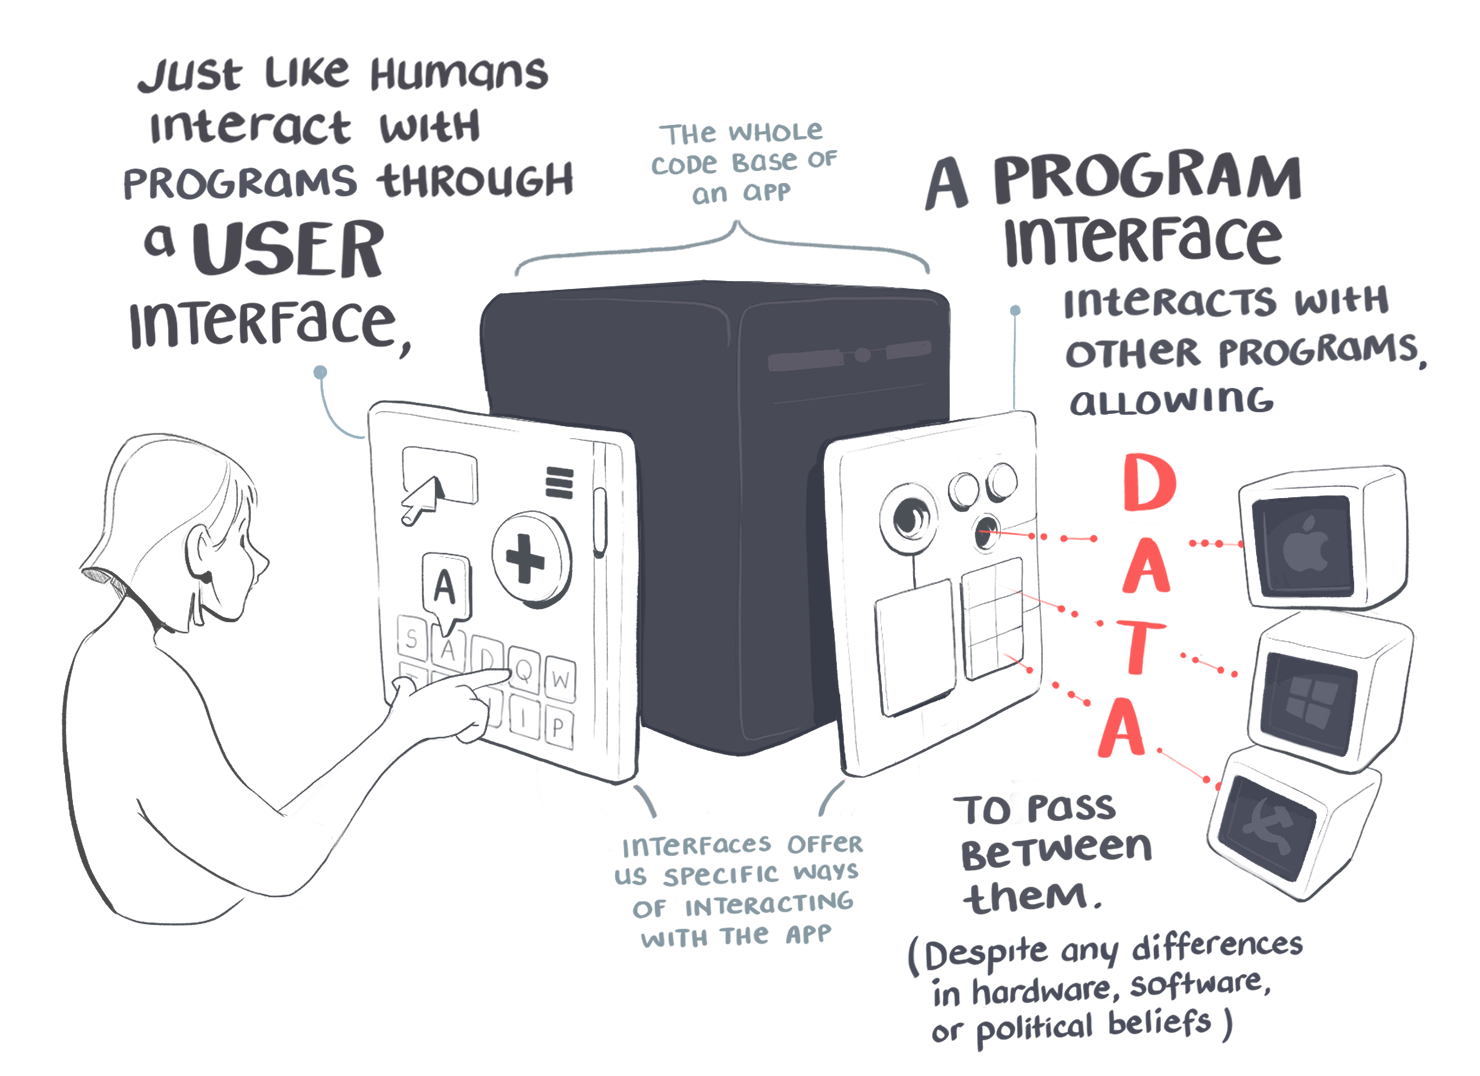 Just Like Humans
interact with
programs through
a USER
interface,
The whole
code base of
an app
A PROGRAM
interface
interacts with
other programs,
allowing
D
A
T
A
to pass
between
them.
(Despite any differences
in hardware, software,
or political beliefs)
A
S A D Q W
I P
interfaces offer
us specific ways
of interacting
with the app